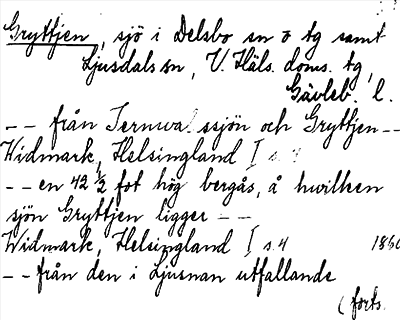 Gryttjen, sjö i Delsbo sn o tg samt
Ljusdals sn, V. Häls. doms. tg,
Gävleb. l.
-- från Ternvalssjön och Gryttjen --
Widmark, Helsingland I s.
-- en 42 ½ fot hög bergås, å hvilken
sjön Gryttjen ligger --
Widmark, Helsingland I s. 4 1860
-- från den i Ljusnan utfallande
(forts.